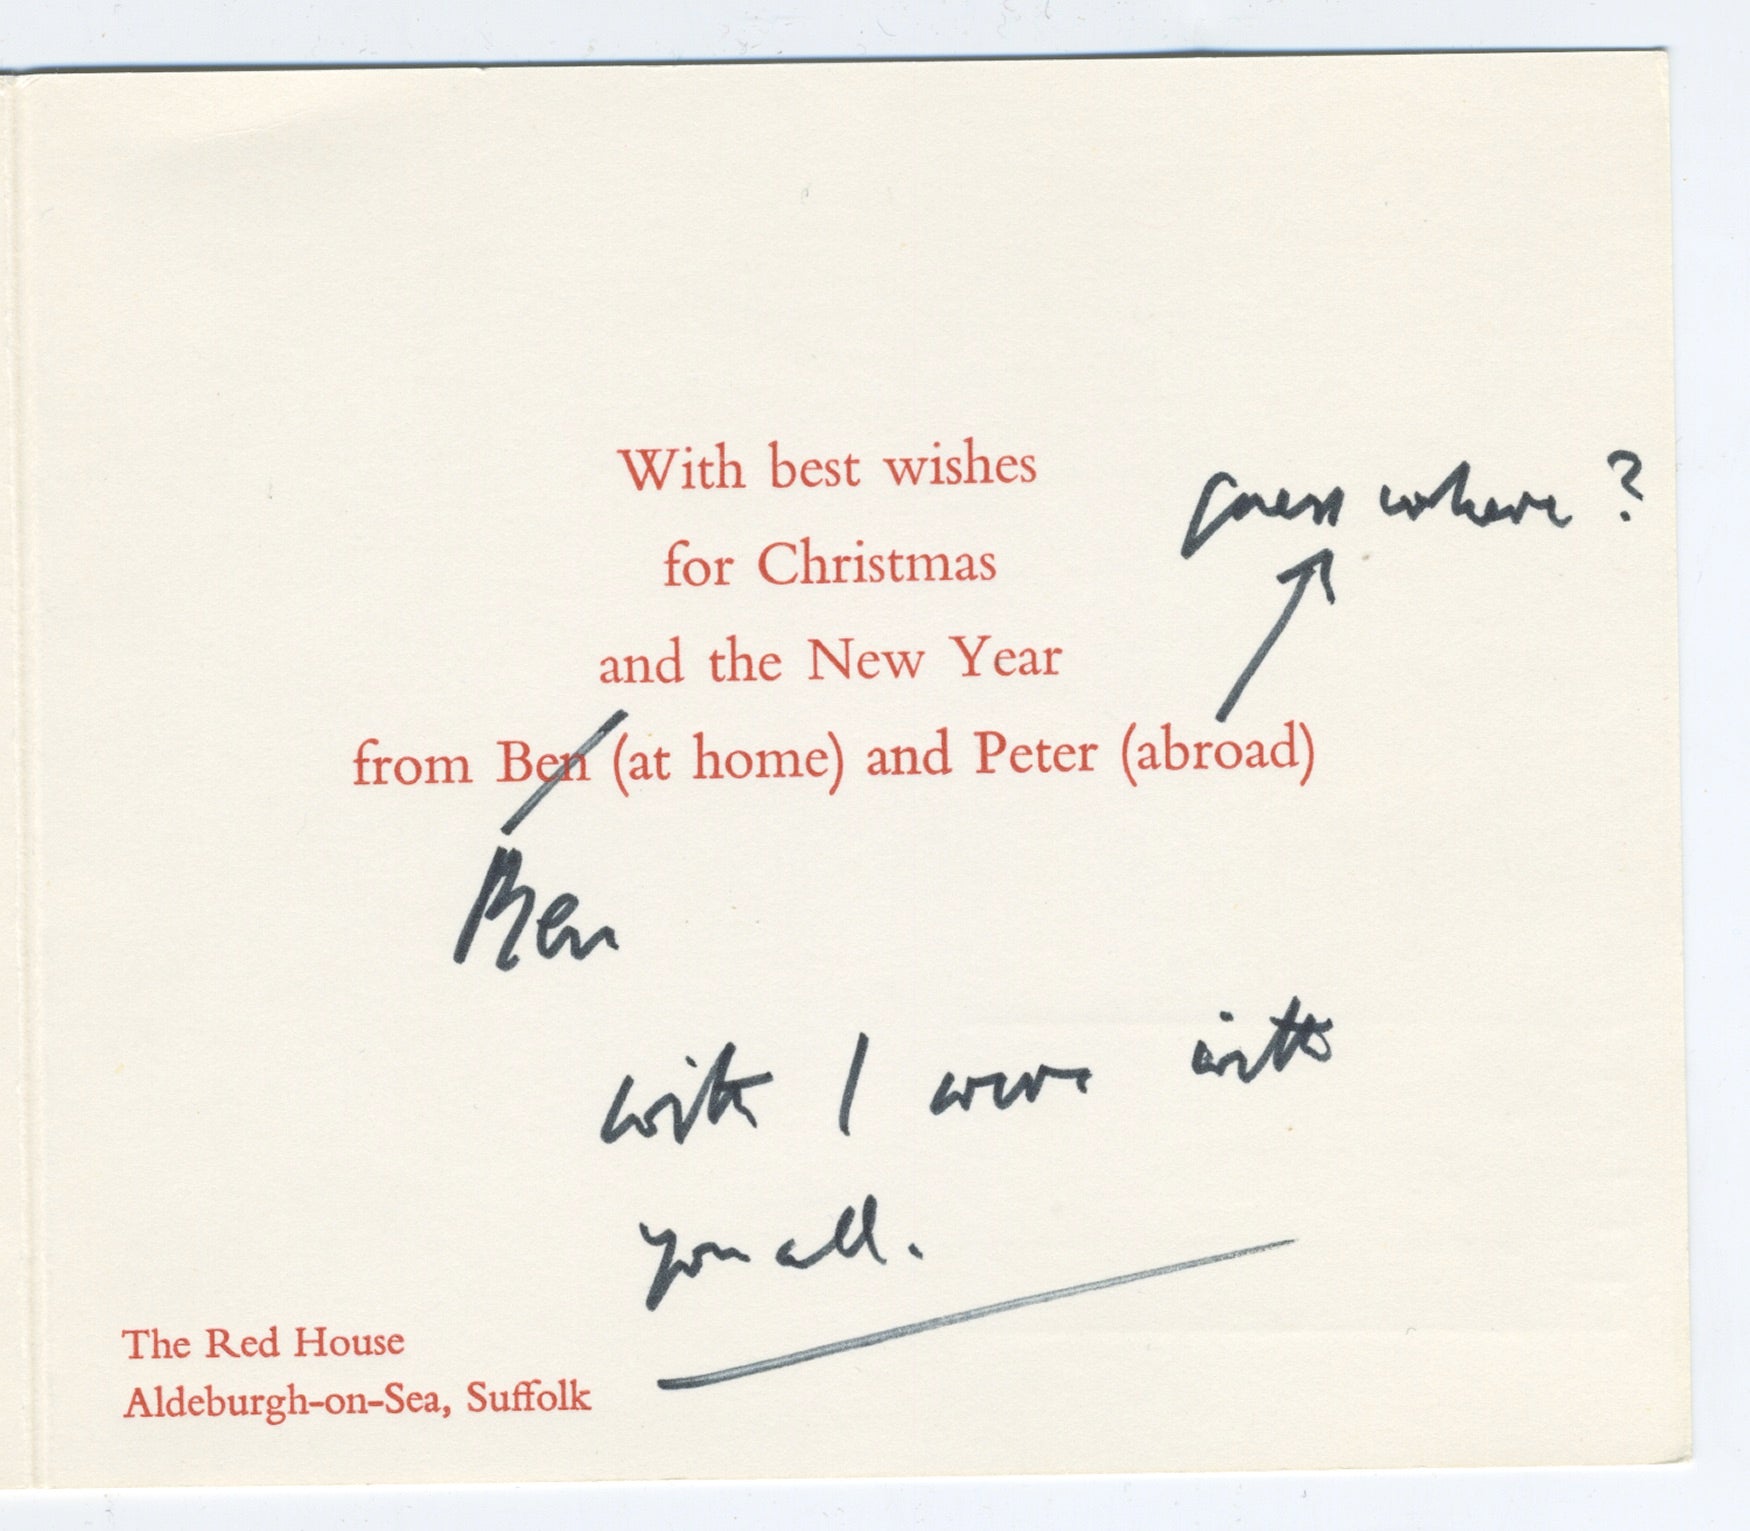 With best wishes
guess where?
for Christmas
and the New Year
from Ben (at home) and Peter (abroad)
Ben
wish I were with
you all.
The Red House
Aldeburgh-on-Sea, Suffolk